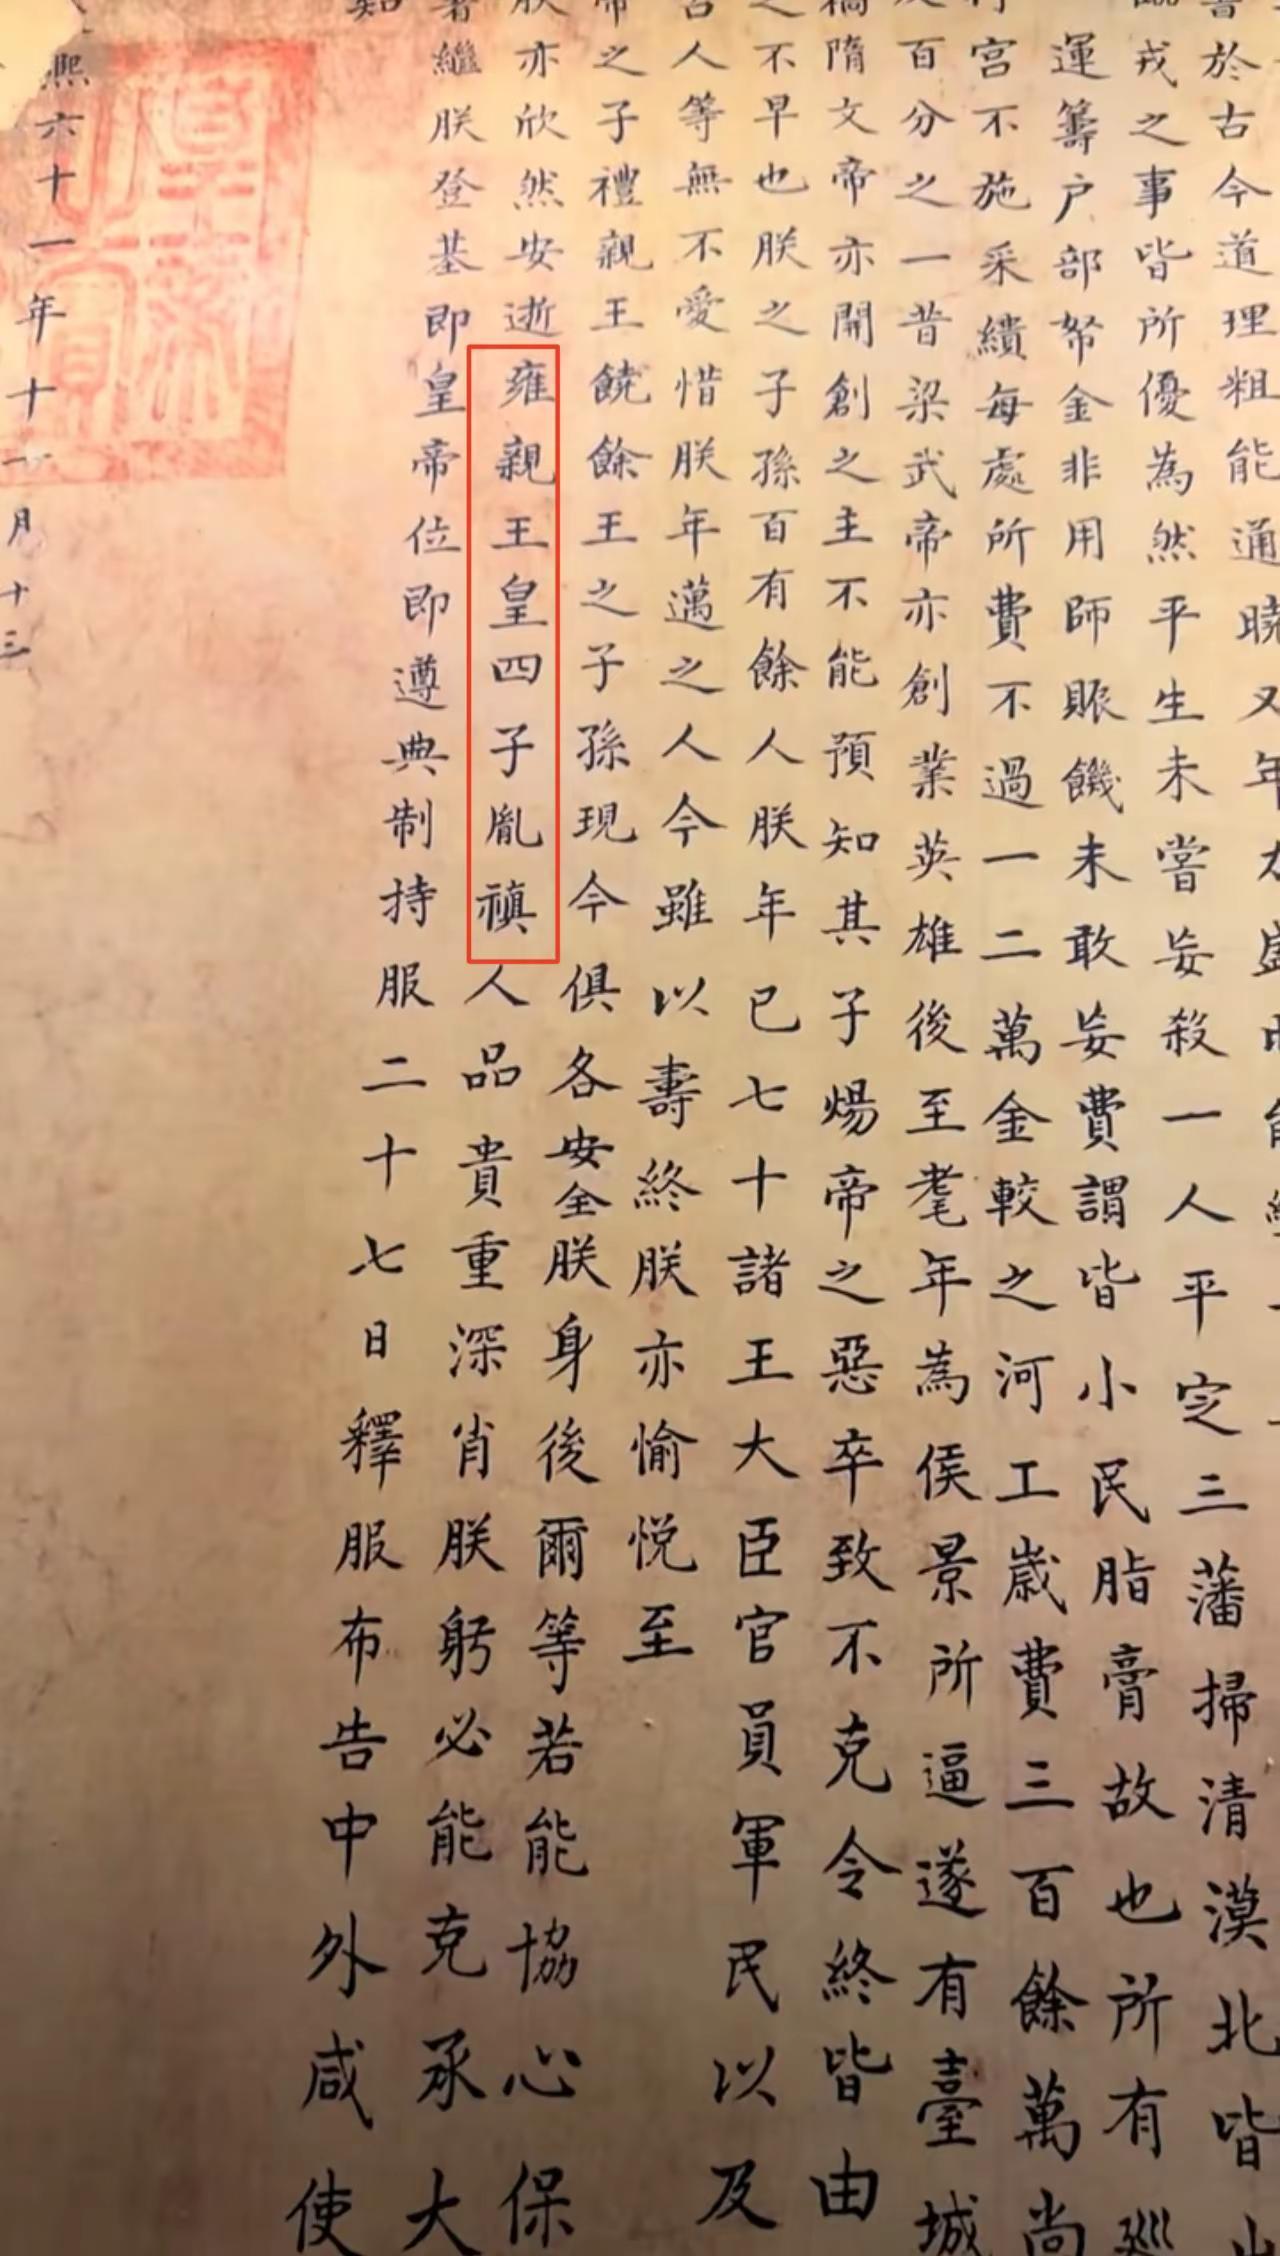 於古今道理粗能通曉又年力盛
戎之事皆所優為然平生未嘗妄殺一人平定三藩掃清漠北皆出
運籌户部帑金非用師賑饑未敢妄費謂皆小民脂膏故也所有巡
行宮不施采繢每處所費不過一二萬金較之河工歲費三百餘萬尚
百分之一昔梁武帝亦創業英雄後至耄年為侯景所逼遂有臺城
禍隋文帝亦開創之主不能預知其子煬帝之惡卒致不克令終皆由
之不早也朕之子孫百有餘人朕年已七十諸王大臣官員軍民以及
人等無不愛惜朕年邁之人今雖以壽終朕亦愉悦至
帝之子禮親王饒餘王之子孫現今俱各安全朕身後爾等若能協心保
朕亦欣然安逝雍親王皇四子胤禛人品貴重深肖朕躬必能克承大
著繼朕登基即皇帝位即遵典制持服二十七日釋服布告中外咸使
知
熙六十一年十一月十三
皇帝之寶